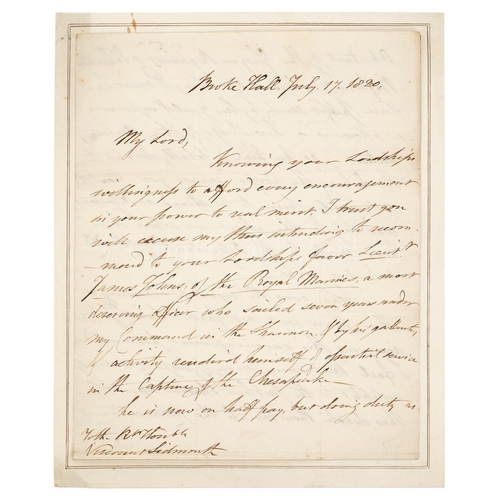 Broke Hall July 17. 1820.
My Lord,
Knowing your Lordships
willingness to afford every encouragement
in your power to real merit, I trust you
will excuse my thus intruding to recom
- mend to your Lordships favor Lieut.t
James Johns, of the Royal Marines, a most
deserving officer who sailed seven years under
my Command in the Shannon, & by his gallantry
& activity rendered himself of essential service
in the Capture of the Chesapeake —
he is now on half pay, but doing duty as
To the Rt. Hon.ble
Viscount Sidmouth